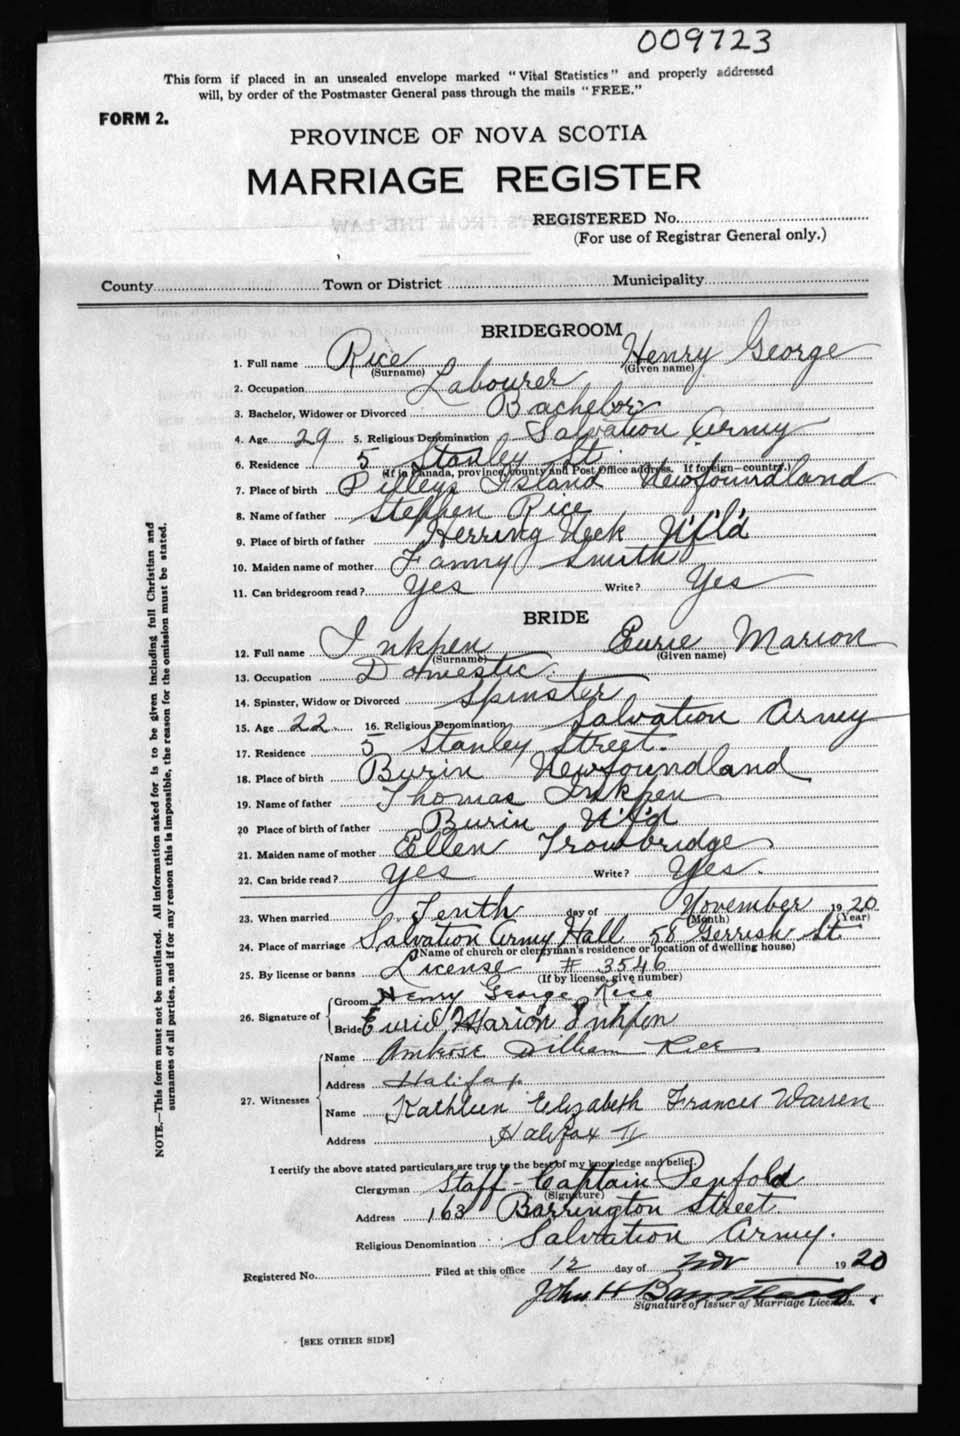 009723
This form if placed in an unsealed envelope marked "Vital Statistics" and properly addressed
will, by order of the Postmaster General pass through the mails "FREE."
FORM 2.
PROVINCE OF NOVA SCOTIA
MARRIAGE REGISTER
REGISTERED No.
(For use of Registrar General only.)
County Town or District Municipality
BRIDEGROOM
1. Full name Rice Henry George
(Surname) (Given name)
2. Occupation Labourer
3. Bachelor, Widower or Divorced Bachelor
4. Age 29 5. Religious Denomination Salvation Army
6. Residence 5 Stanley St.
(If in Canada, province, county and Post Office address. If foreign—country.)
7. Place of birth Pilleys Island Newfoundland
8. Name of father Stephen Rice
9. Place of birth of father Herring Neck N'f'l'd
10. Maiden name of mother Fanny Smith
11. Can bridegroom read? Yes Write? Yes
BRIDE
12. Full name Inkpen Eurie Marion
(Surname) (Given name)
13. Occupation Domestic
14. Spinster, Widow or Divorced Spinster
15. Age 22 16. Religious Denomination Salvation Army
17. Residence 5 Stanley Street.
18. Place of birth Burin Newfoundland
19. Name of father Thomas Inkpen
20 Place of birth of father Burin N'f'l'd
21. Maiden name of mother Ellen Trowbridge
22. Can bride read? Yes Write? Yes.
23. When married Tenth day of November 1920
(Month) (Year)
24. Place of marriage Salvation Army Hall 58 Gerrish St
(Name of church or clergyman's residence or location of dwelling house)
25. By license or banns License # 3546
(If by license, give number)
26. Signature of Groom Henry George Rice
Bride Eurie Marion Inkpen
27. Witnesses
Name Ambrose William Rice
Address Halifax
Name Kathleen Elizabeth Frances Warren
Address Halifax
I certify the above stated particulars are true to the best of my knowledge and belief.
Clergyman Staff-Captain Penfold
(Signature)
Address 163 Barrington Street.
Religious Denomination Salvation Army.
Registered No. Filed at this office 12 day of Nov 1920
John H
Signature of Issuer of Marriage Licenses.
[SEE OTHER SIDE]
NOTE.—This form must not be mutilated. All information asked for is to be given including full Christian and
surnames of all parties, and if for any reason this is impossible, the reason for the omission must be stated.